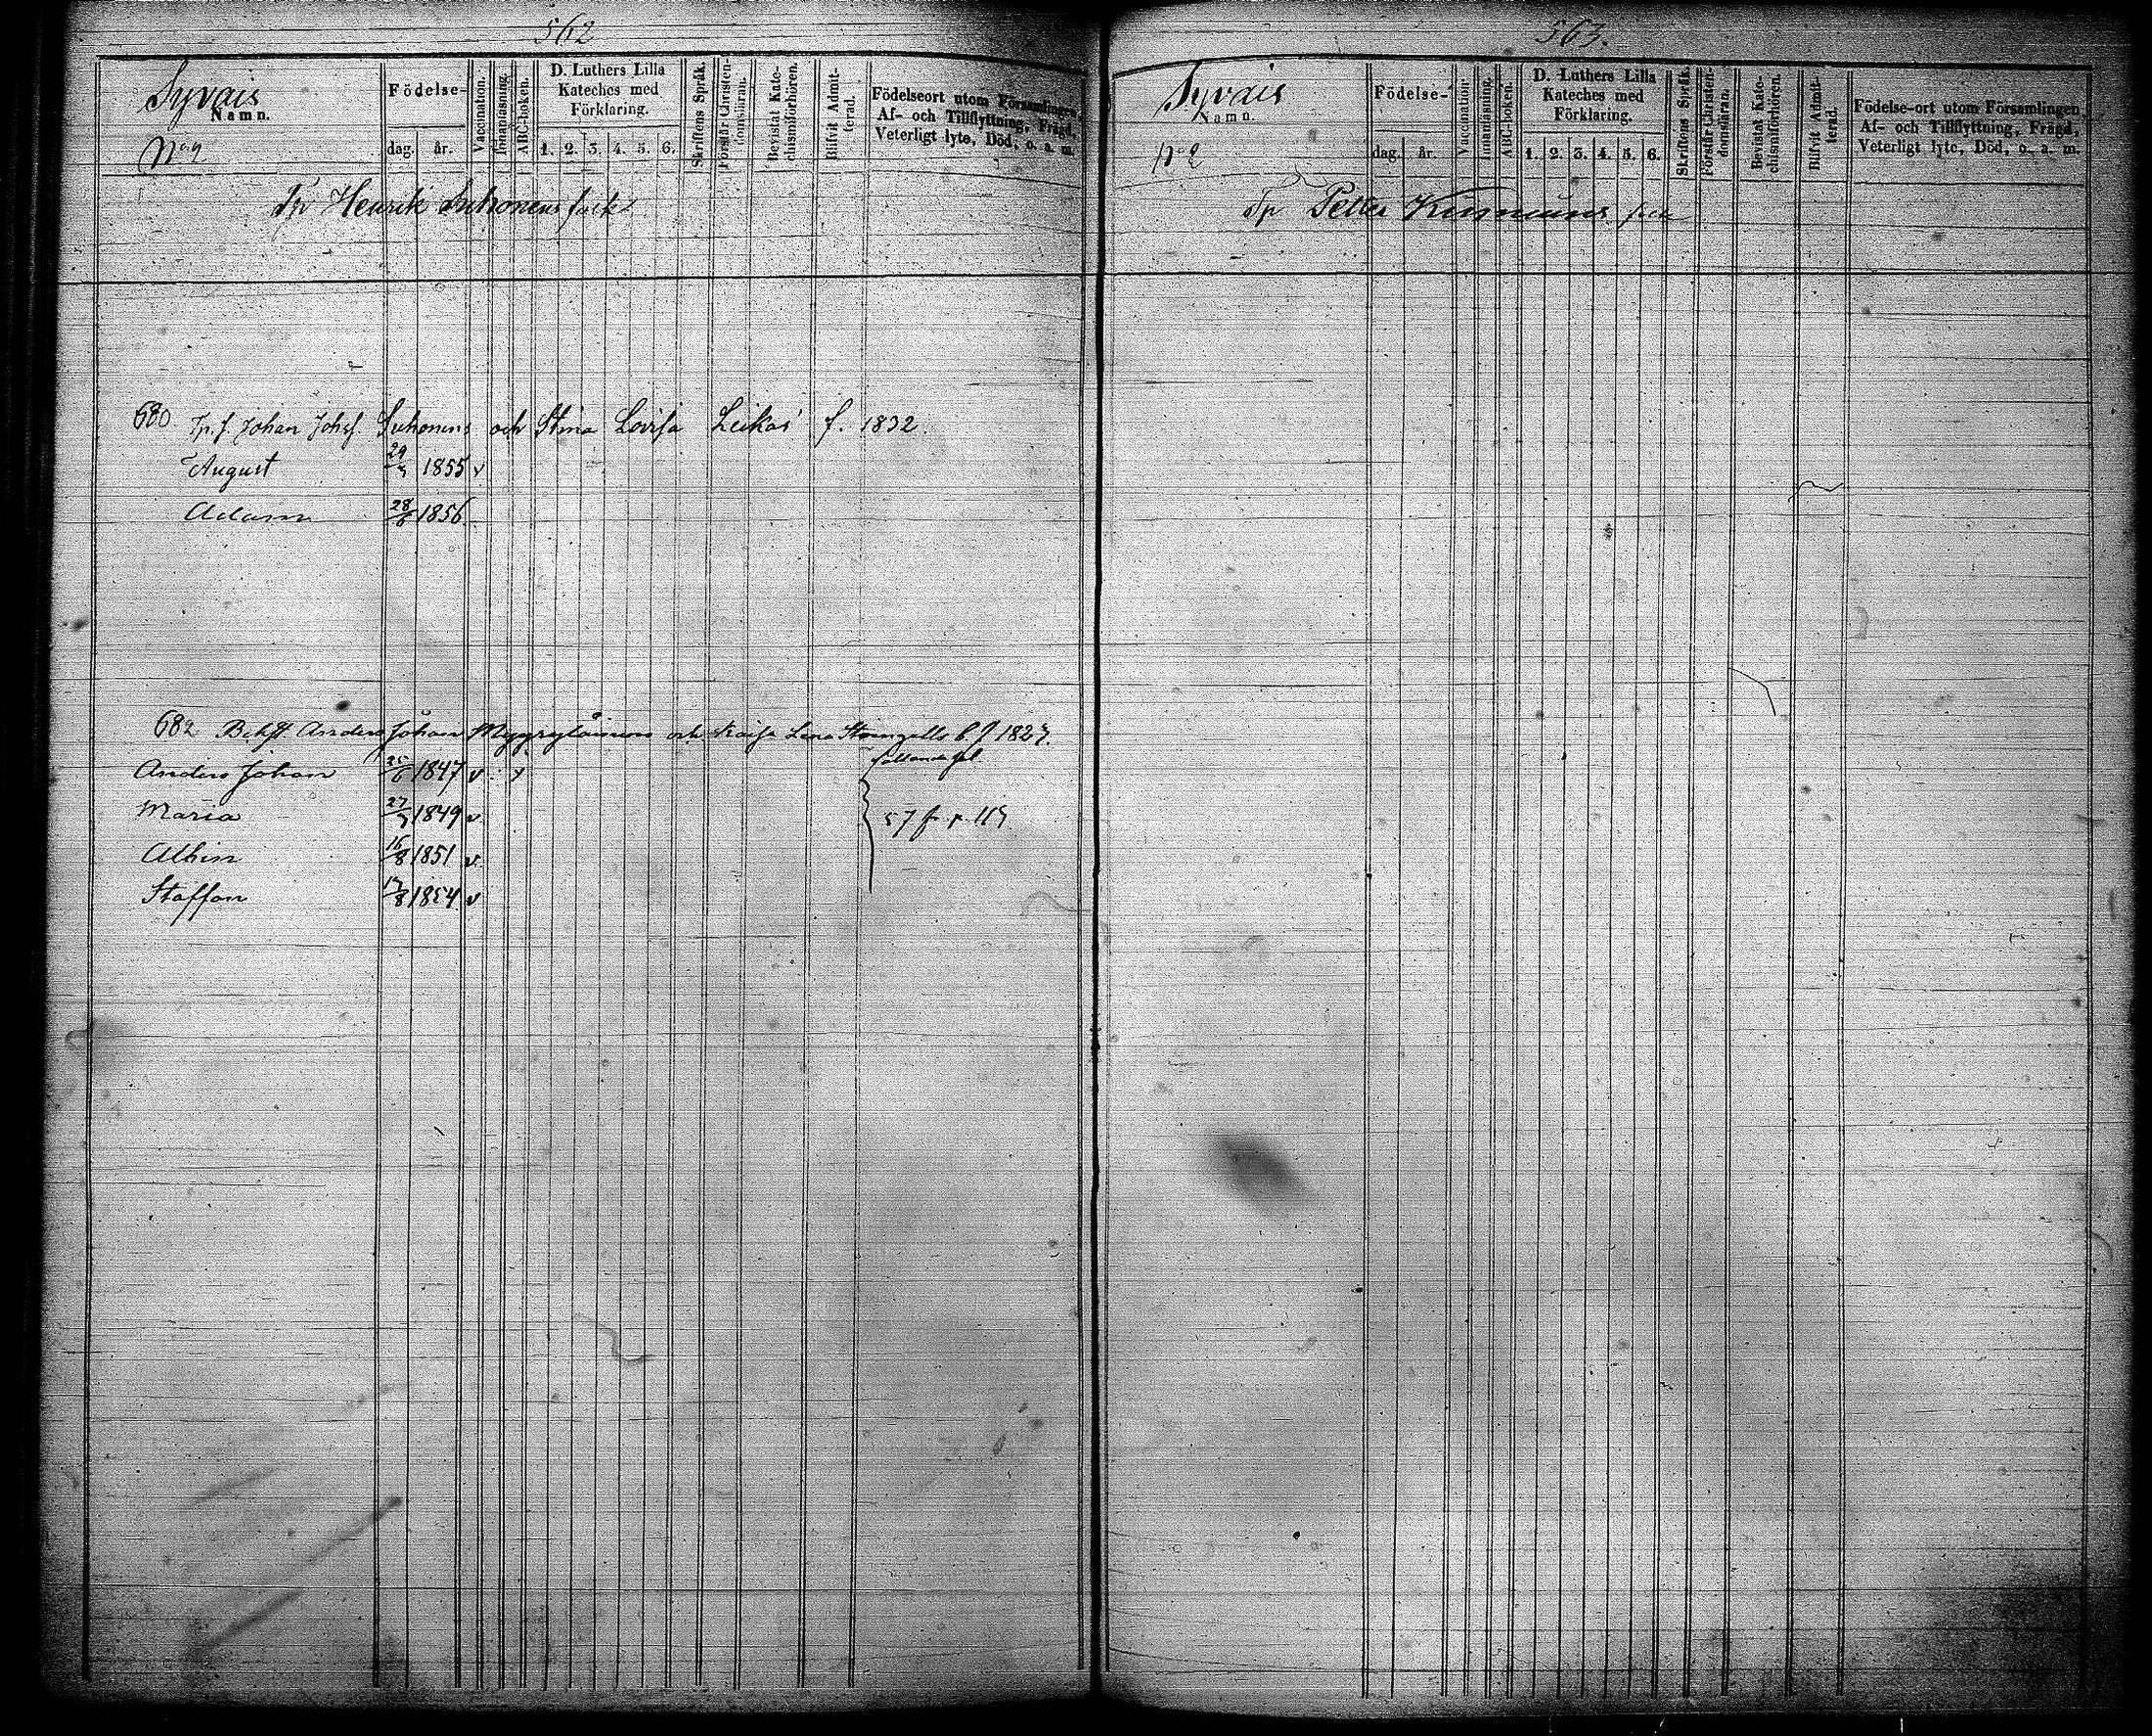 562
Syvais
Namn.
Födelse-
dag. år.
Vaccination.
Innanläsning.
ABC-boken.
D. Luthers Lilla
Kateches med
Förklaring.
1. 2. 3. 4. 5. 6.
Skriftens Språk.
Förstår Christen-
domsläran.
Bevistat Kate-
chismiförhören.
Blifvit Admit-
terad.
Födelseort utom Församlingen,
Af- och Tillflyttning, Frägd,
Veterligt lyte, Död, o. a. m.
Henrik Suhonens folk
680 Johan Johsf. Suhonens och Stina Lovisa Leikas f. 1832.
August 1855 v
Adam 28/6 1856
682 Anders Johan och Kaisa Lena f 1827.
Anders Johan 25/6 1847 v
Maria 1849 v
Albin 16/8 1851 v
57 fr. p. 115
Staffan 1854 v
563.
Syvais
Namn.
No 2
Födelse-
dag. år.
Vaccination.
Innanläsning.
ABC-boken.
D. Luthers Lilla
Kateches med
Förklaring.
1. 2. 3. 4. 5. 6.
Skriftens Språk.
Förstår Christen-
domsläran.
Bevistat Kate-
chismiförhören.
Blifvit Admit-
terad.
Födelse-ort utom Församlingen
Af- och Tillflyttning, Frägd,
Veterligt lyte, Död, o. a. m.
Petter